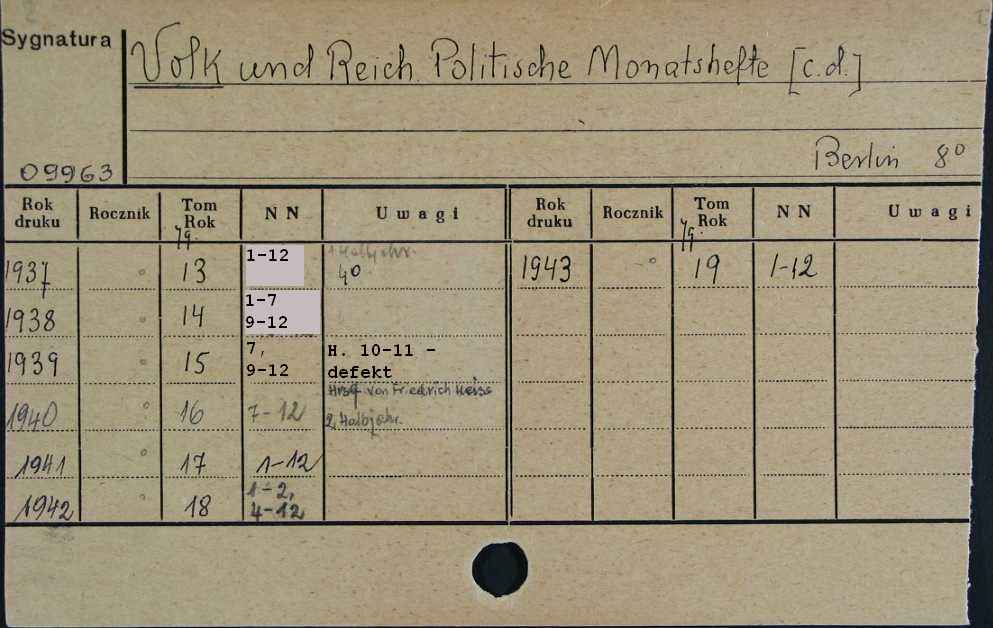 Sygnatura
Volk und Reich. Politische Monatshefte [c.d.]
Berlin 8°
09963
Rok druku Rocznik Tom Rok N N Uwagi Rok druku Rocznik Tom Rok N N Uwagi
Jg. Jg.
1937 ° 13 1-12 1 Halbjahr. 4° 1943 -° 19 1-12
1938 ° 14 1-7 9-12
1939 ° 15 7, 9-12 H. 10-11 - defekt
Hrsg von Friedrich Heiss
1940 ° 16 7-12 2, Halbjahr.
1941 ° 17 1-12
1942 ° 18 1-2, 4-12